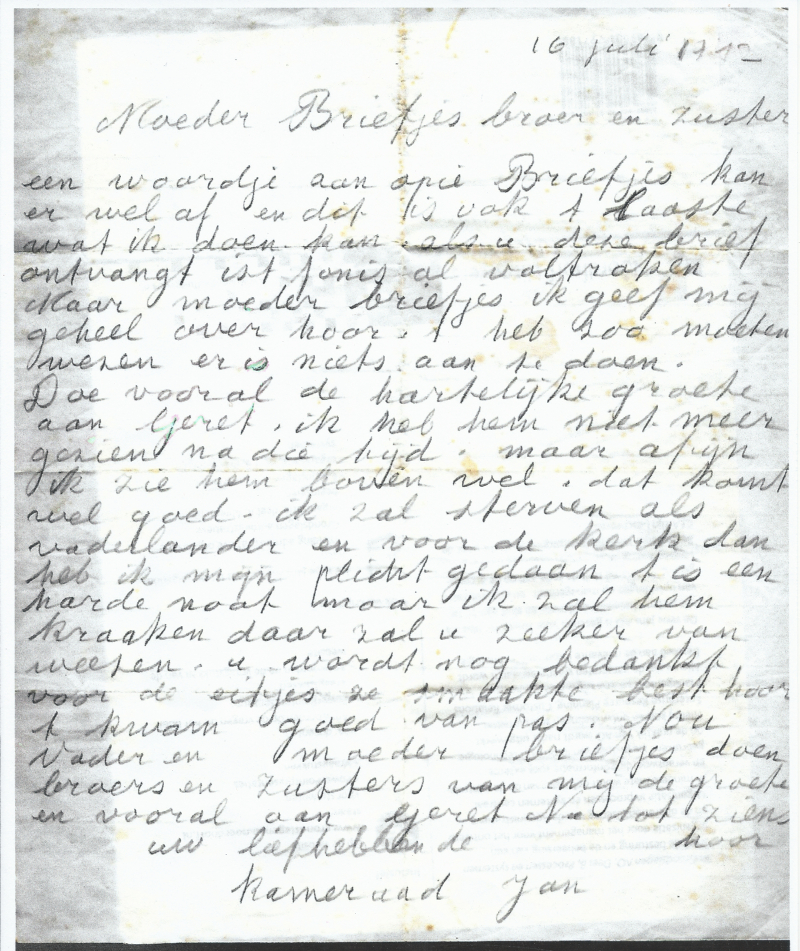 16 juli
Moeder Briefjes broer en zuster
een woordje aan opie Briefjes kan
er wel af en dit is ook t laaste
wat ik doen kan als u deze brief
ontvangt ist fonis al voltroken
Maar moeder briefjes ik geef mij
geheel over hoor. t heb zoo moeten
wesen er is niets aan te doen.
Doe vooral de hartelijke groete
aan Geret. ik heb hem niet meer
gezien na die tijd. maar afijn
ik zie hem boven wel. dat komt
wel goed. ik zal sterven als
vaderlander en voor de kerk dan
heb ik mijn plicht gedaan t is een
harde noot maar ik zal hem
kraaken daar zal u zeeker van
weesen. u wordt nog bedankt
voor de eitjes ze smaakte best hoor
t kwam goed van pas. Nou
Vader en moeder briefjes doen
broers en zusters van mij de groete
en vooral aan Geret Nu tot ziens
uw liefhebbende hoor
kameraad Jan